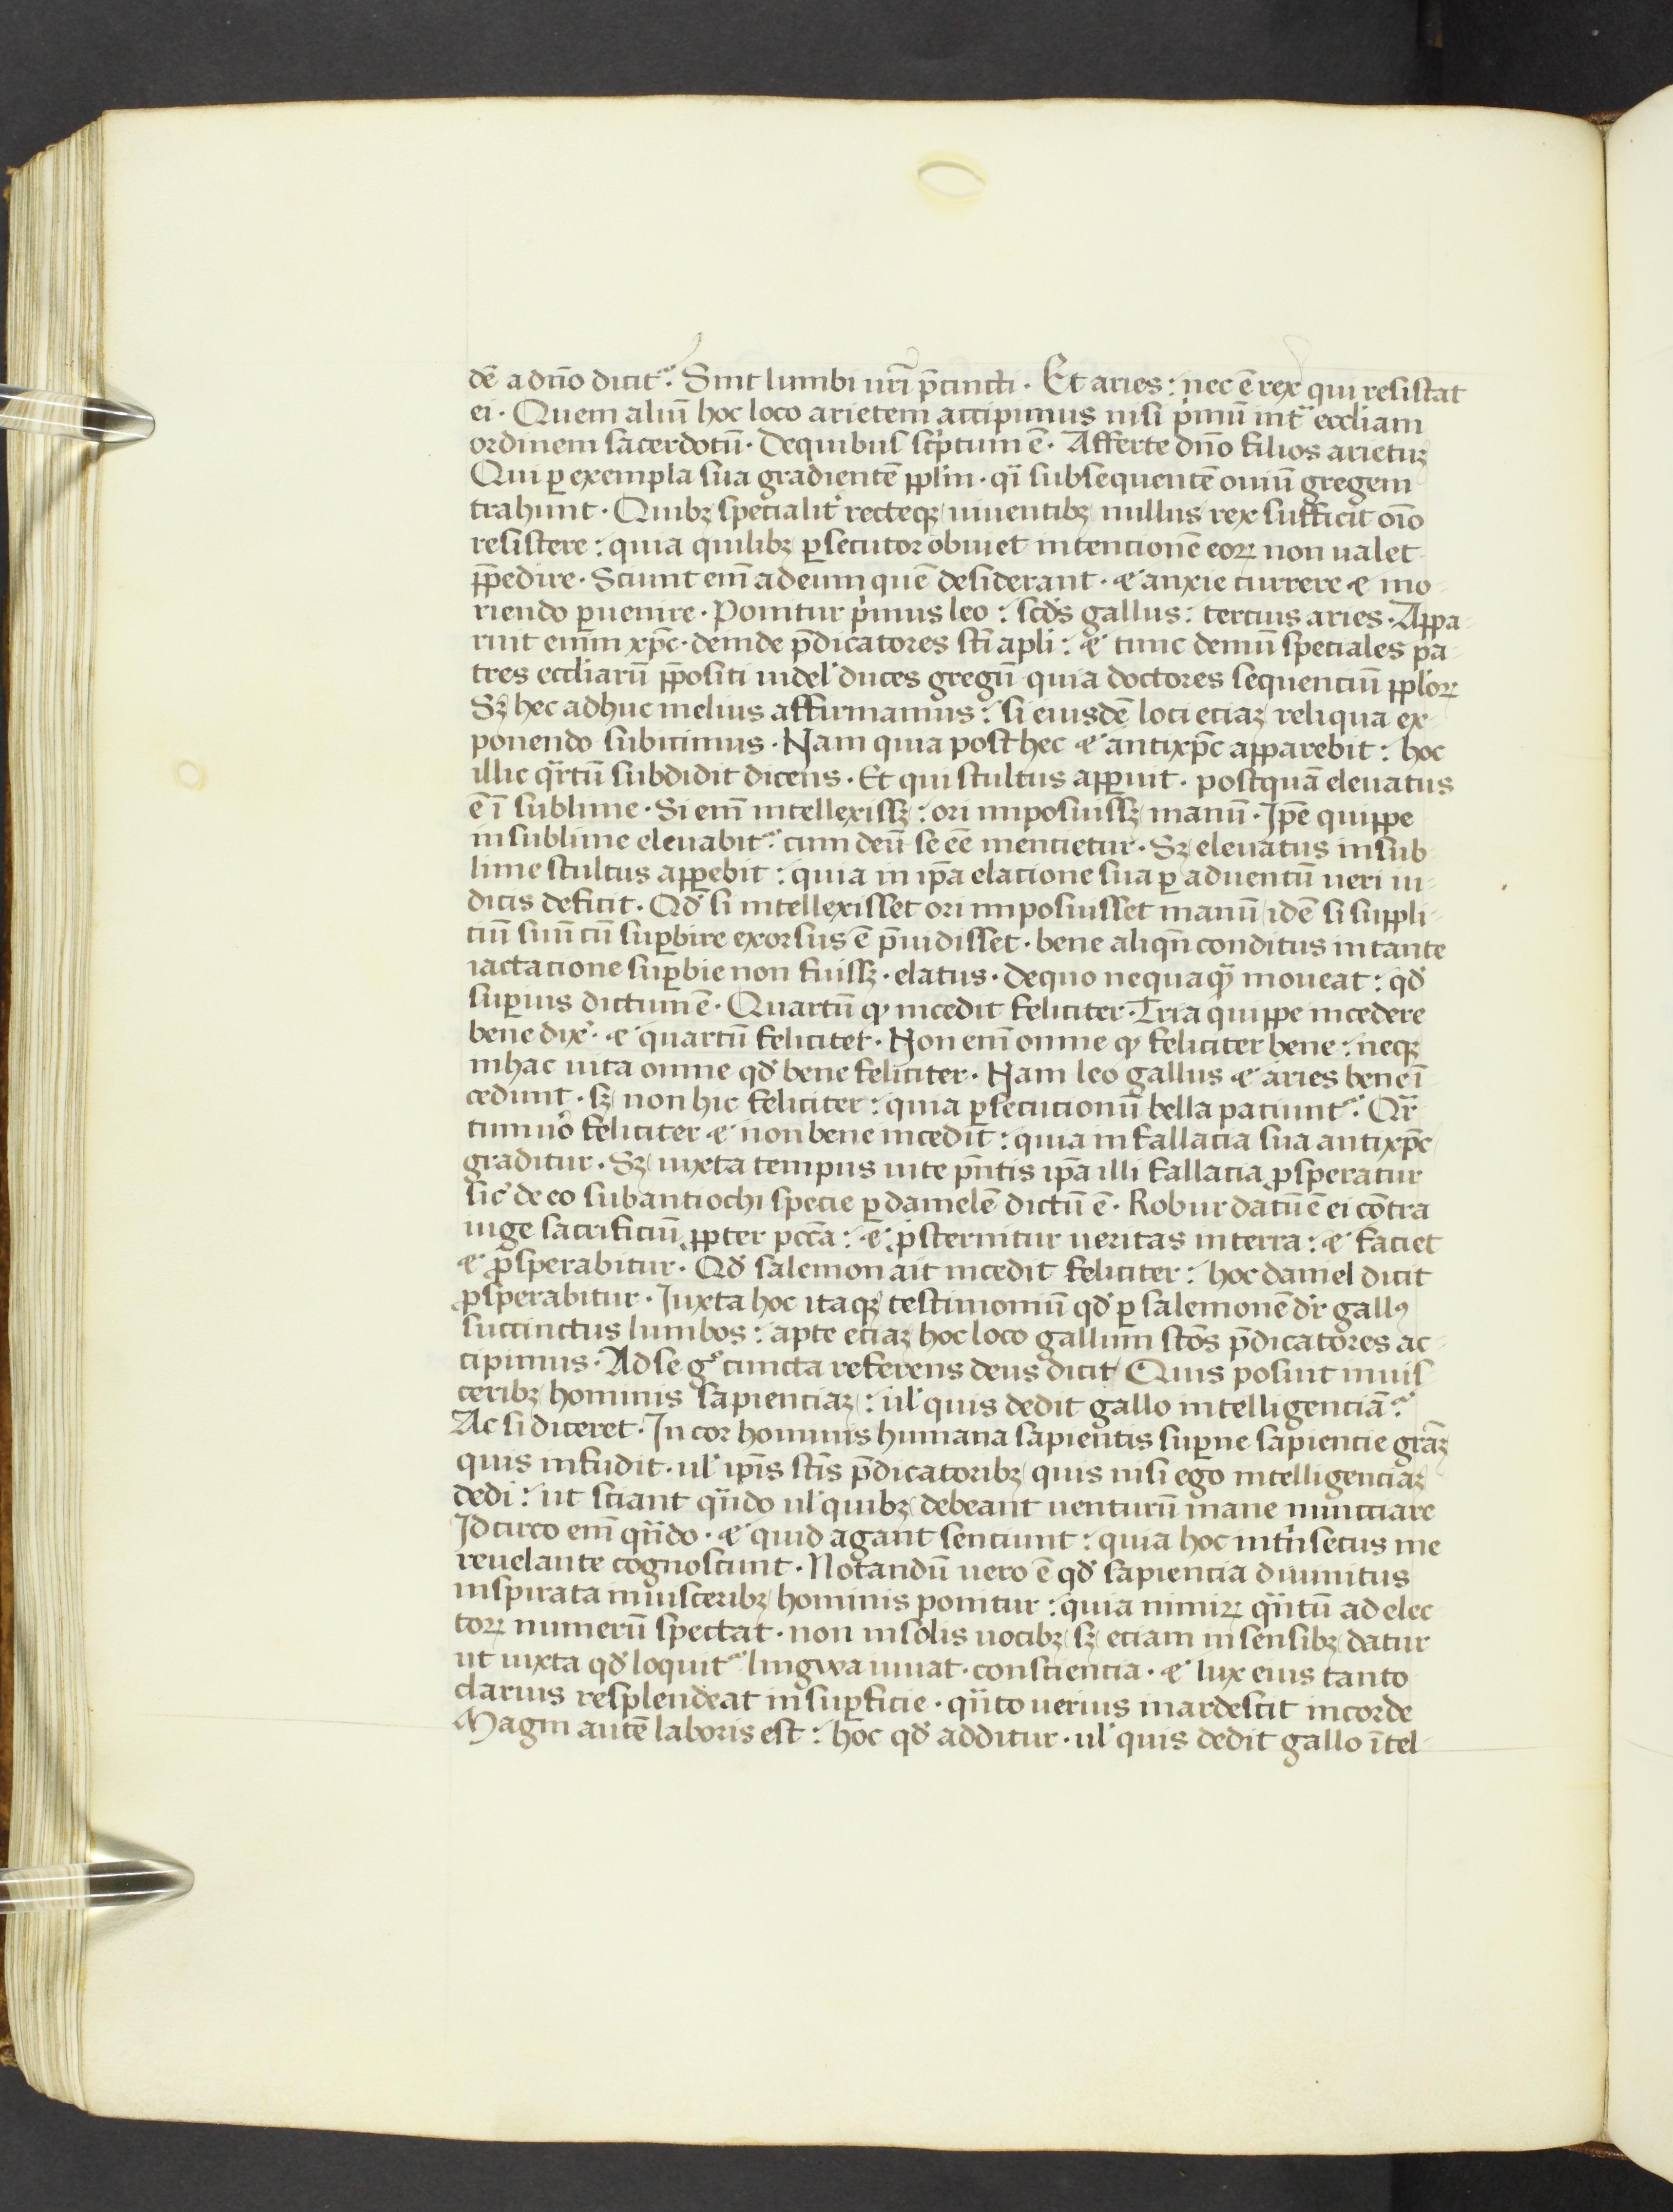 dē a dn̄o dicit᷑. Sint lumbi ur̄i p̄cincti · Et aries : nec ē rex qui resistat
ei · Quem aliū hoc loco arietem accipimus nisi pͥmū int᷑ ecc̄liam
ordinem sacerdotū · De quibus scͥptum ē · Afferte dn̄o filios arietuꝫ
Qui ꝑ exempla sua gradientē ppl̄m · qͣi subsequentē ouiū gregem
trahunt · Quibꝫ specialit᷑ recteqꝫ uiuentibꝫ nullus rex sufficit oīo
resistere : quia quilibꝫ ꝑsecutor obuiet intencionē eoꝝ non ualet
p̄pedire · Sciunt em̄ ad eum quē desiderant · ⁊ anxie currere ⁊ mo-
riendo ꝑuenire · Ponitur pͥmus leo : scd̄s gallus : tercius aries · Appa-
ruit enim xp̄c · deinde p̄dicatores sc̄i apl̄i : ⁊ tunc demū speciales pa-
tres ecc̄liarū p̄positi uidel᷑ duces gregū quia doctores sequenciū ppl̄oꝝ
Sꝫ hec adhuc melius affirmamus : si eiusdē loci eciaꝫ reliqua ex-
ponendo subicimus · Nam quia post hec ⁊ antixp̄c apparebit : hoc
illic qͣrtū subdidit dicens · Et qui stultus apꝑuit · postquā eleuatus
ē ī sublime · Si em̄ intellexissꝫ : ori imposuissꝫ manū · Ip̄e quippe
in sublime eleuabit᷑ : cum deū se ēe mencietur · Sꝫ eleuatus in sub-
lime stultus apꝑebit : quia in ip̄a elacione sua ꝑ aduentū ueri iu-
dicis deficit · Qd̄ si intellexisset ori imposuisset manū idē si suppli-
ciū suū cū suꝑbire exorsus ē p̄uidisset · bene aliqn̄ conditus in tante
iactacione suꝑbie non fuissꝫ · elatus · De quo nequaqͣꝫ moueat : qd̄
suꝑius dictum ē · Quartū qꝫ incedit feliciter · Tria quippe incedere
bene dix᷑ · ⁊ quartū feliciter · Non em̄ omne qꝫ feliciter bene : neqꝫ
in hac uita omne qd̄ bene feliciter · Nam leo gallus ⁊ aries bene ī-
cedunt · sꝫ non hic feliciter : quia ꝑsecucionū bella paciunt᷑ · Qͣr-
tum uͦo feliciter ⁊ non bene incedit : quia in fallacia sua antixp̄c
graditur · Sꝫ iuxta tempus uite p̄ntis ip̄a illi fallacia ꝓsperatur
sic᷑ de eo sub antiochi specie ꝑ danielē dictū ē · Robur datū ē ei cōntra
iuge sacrificiū ꝓpter pcc̄a : ⁊ ꝓsternitur ueritas in terra : ⁊ faciet
⁊ ꝓsperabitur · Qd̄ salemon ait incedit feliciter : hoc daniel dicit
ꝓsperabitur · Iuxta hoc itaqꝫ testimoniū qd̄ ꝑ salemonē dr̄ gallꝰ
succinctus lumbos : apte eciaꝫ hoc loco gallum sc̄os p̄dicatores ac-
cipimus · Ad se g᷑ cuncta referens deus dicit Quis posuit in uis-
ceribꝫ hominis sapienciaꝫ : ul᷑ quis dedit gallo intelligenciā :
Ac si diceret · In cor hominis humana sapientis suꝑne sapiencie gr̄aꝫ
quis infudit · ul᷑ ip̄is sc̄is p̄dicatoribꝫ quis nisi ego intelligenciaꝫ
dedi : ut sciant qͣndo ul᷑ quibꝫ debeant uenturū mane nuncciare
Idcirco em̄ qͣndo · ⁊ quid agant senciunt : quia hoc intͥnsecus me
reuelante cognoscunt · Notandū uero ē qd̄ sapiencia diuinitus
inspirata in uisceribꝫ hominis ponitur : quia nimiꝝ qͣntū ad elec-
toꝝ numerū spectat · non in solis uocibꝫ sꝫ eciam in sensibꝫ datur
ut iuxta qd̄ loquit᷑ lingwa uiuat · consciencia · ⁊ lux eius tanto
clarius resplendeat in suꝑficie · qͣnto uerius inardescit in corde
Magni autē laboris est : hoc qd̄ additur · ul᷑ quis dedit gallo ītel-